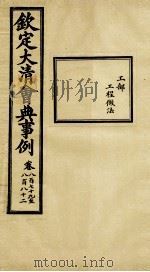 工部
工程做法
欽定大清會典事例 卷
八百七十九至
八百八十二